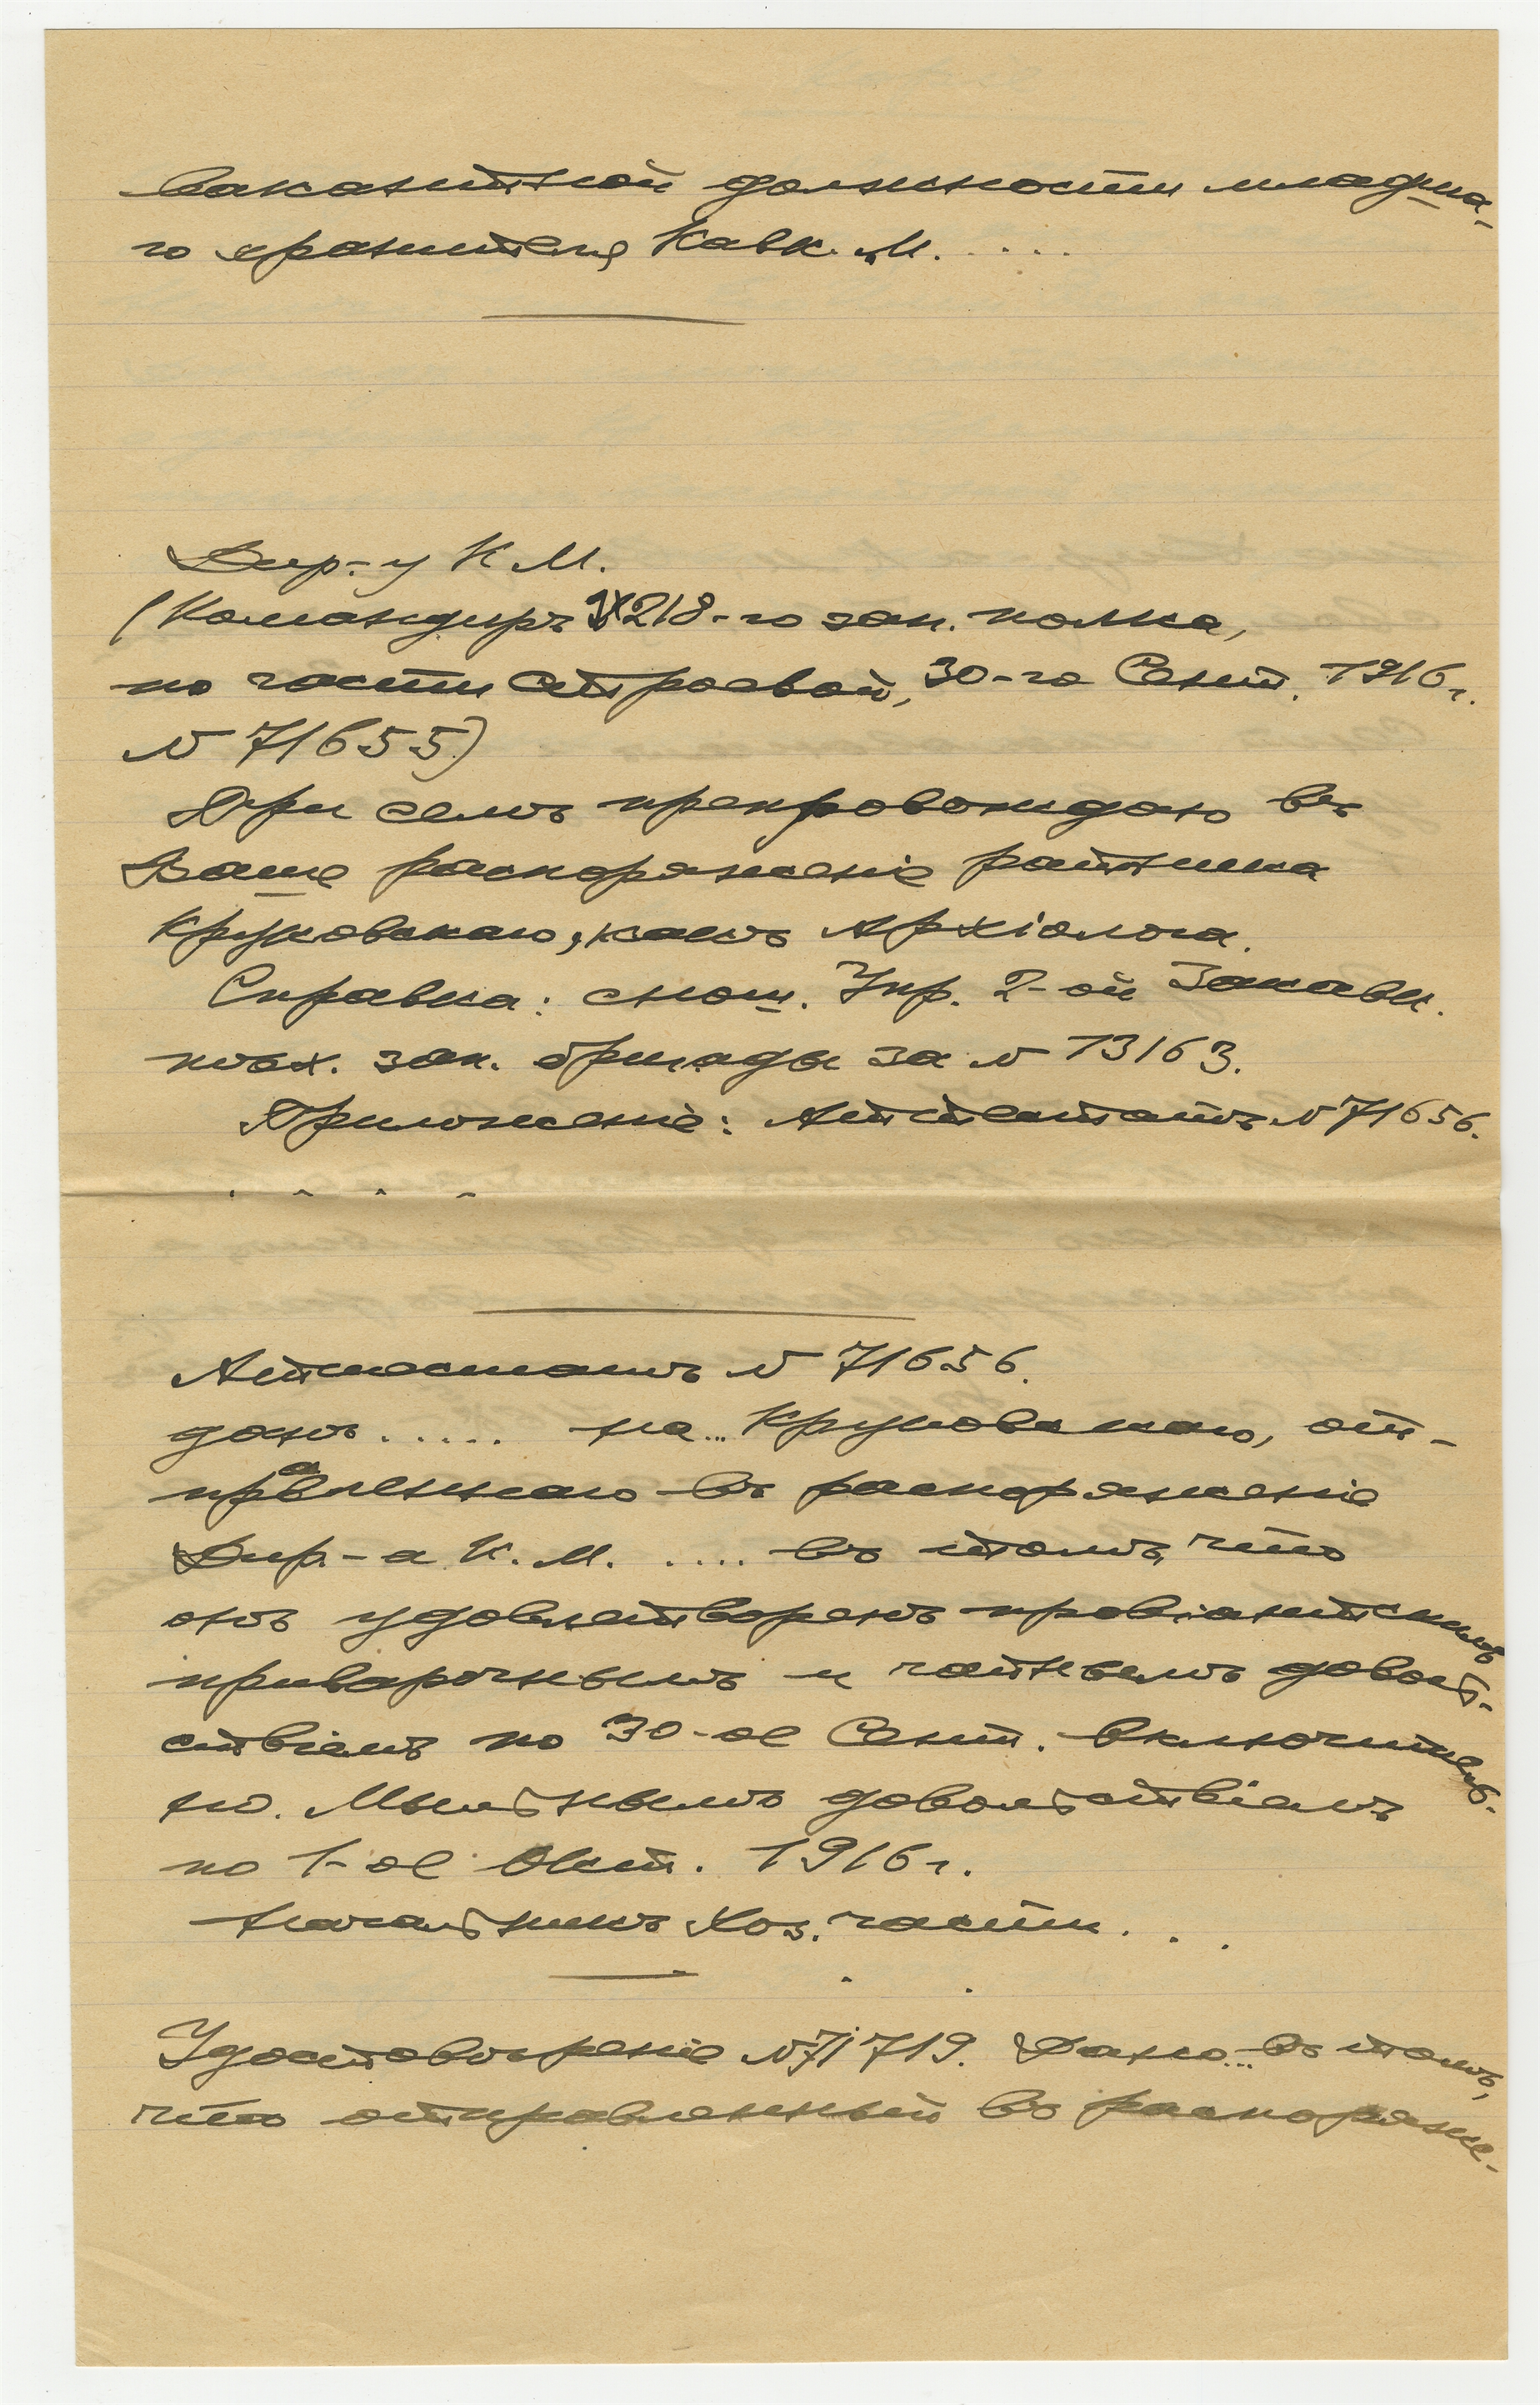 вакантной должности младша-
го хранителя Кавк. М. . . . .
Дир-у К. М.
(Командиръ 218-го зап. полка,
по части строевой, 30-го Сент. 1916 г.
№ 71655)
При семъ препровождаю въ
Ваше распоряженіе ратника
Круковскаго, какъ Архіолога.
Справка: снош. Упр. 2-ой Закавк.
пѣх. зап. бригады за № 13163.
Приложеніе: Аттестатъ № 71656.
. . . .
Аттестатъ № 71656.
данъ ..... на... Круковскаго, от-
правленнаго въ распоряженіе
Дир.-а К. М. .... въ томъ, что
онъ удовлетворенъ провіантскимъ
приварочнымъ и чайнымъ доволь-
ствіемъ по 30-ое Сент. включитель-
но. Мыльнымъ довольствіемъ
по 1-ое Окт. 1916 г.
Начальникъ Хоз. части . . .
Удостовѣреніе № 71719. Дано... въ томъ,
что отправленный въ распоряже-